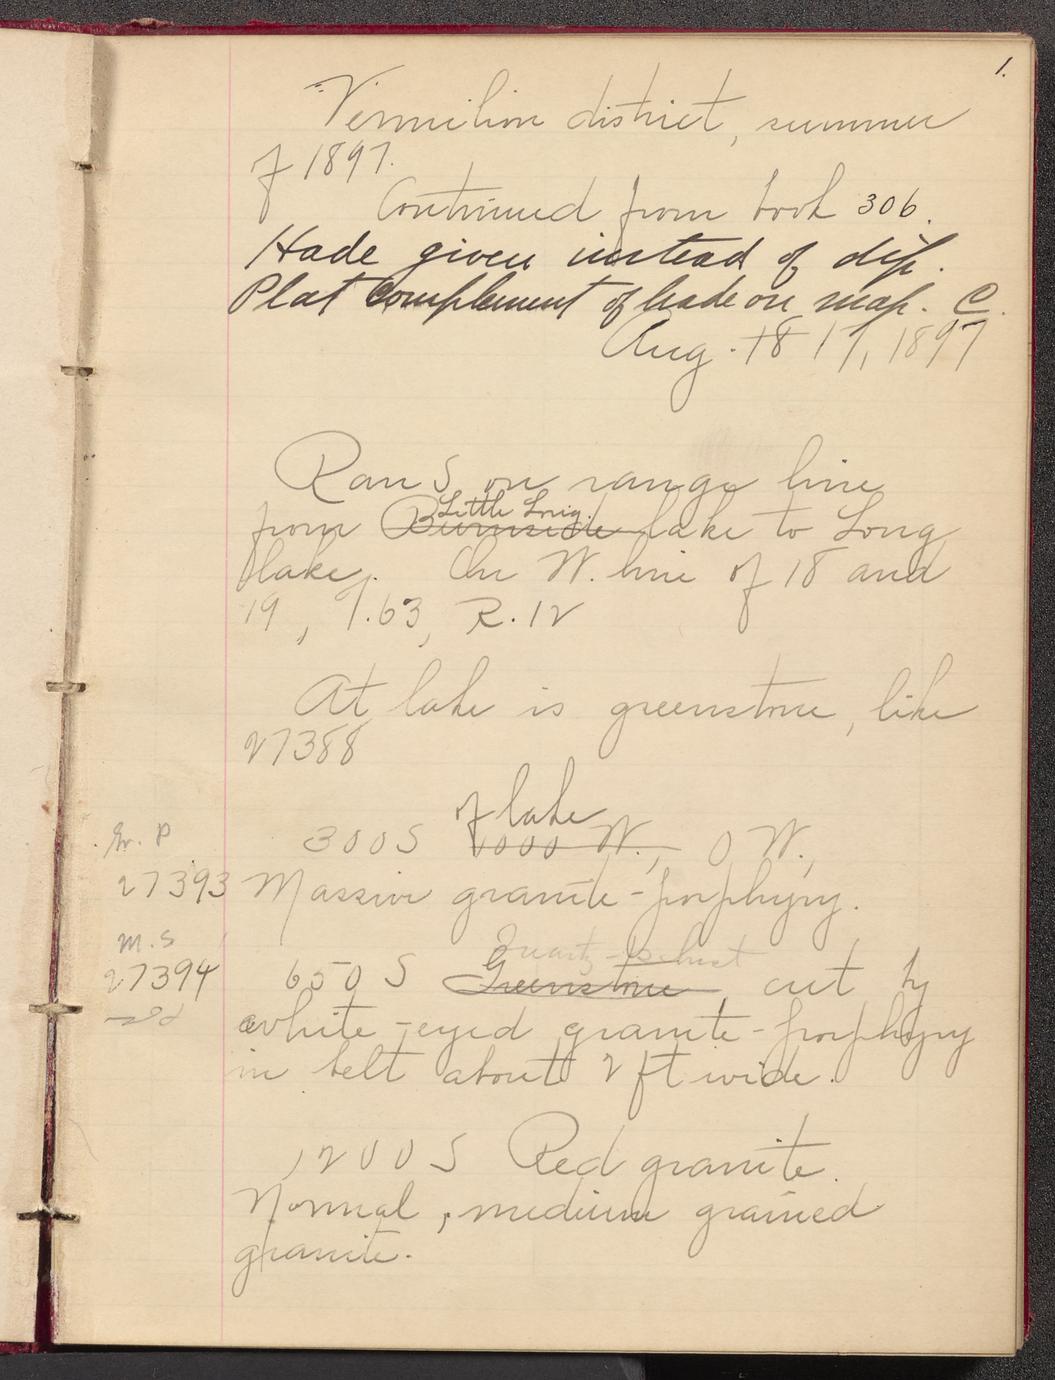 1.
Vermilion district, summer
of 1897.
Continued from book 306.
Hade given instead of dip.
Plat complement of hade on map. C.
Aug. 18 17, 1897
Ran S on range line
Little Long
from Burnside lake to Long
lake. On W. line of 18 and
19, T.63, R.12
At lake is greenstone, like
27388
of lake
300 S 1000 W., 0 W.,
Gr. P
27393 Massive granite-porphyry.
M.S
Quartz-schist
27394 650 S Greenstone, cut by
white-eyed granite-porphyry
in belt about 2 ft wide.
1200 S Red granite.
Normal, medium grained
granite.